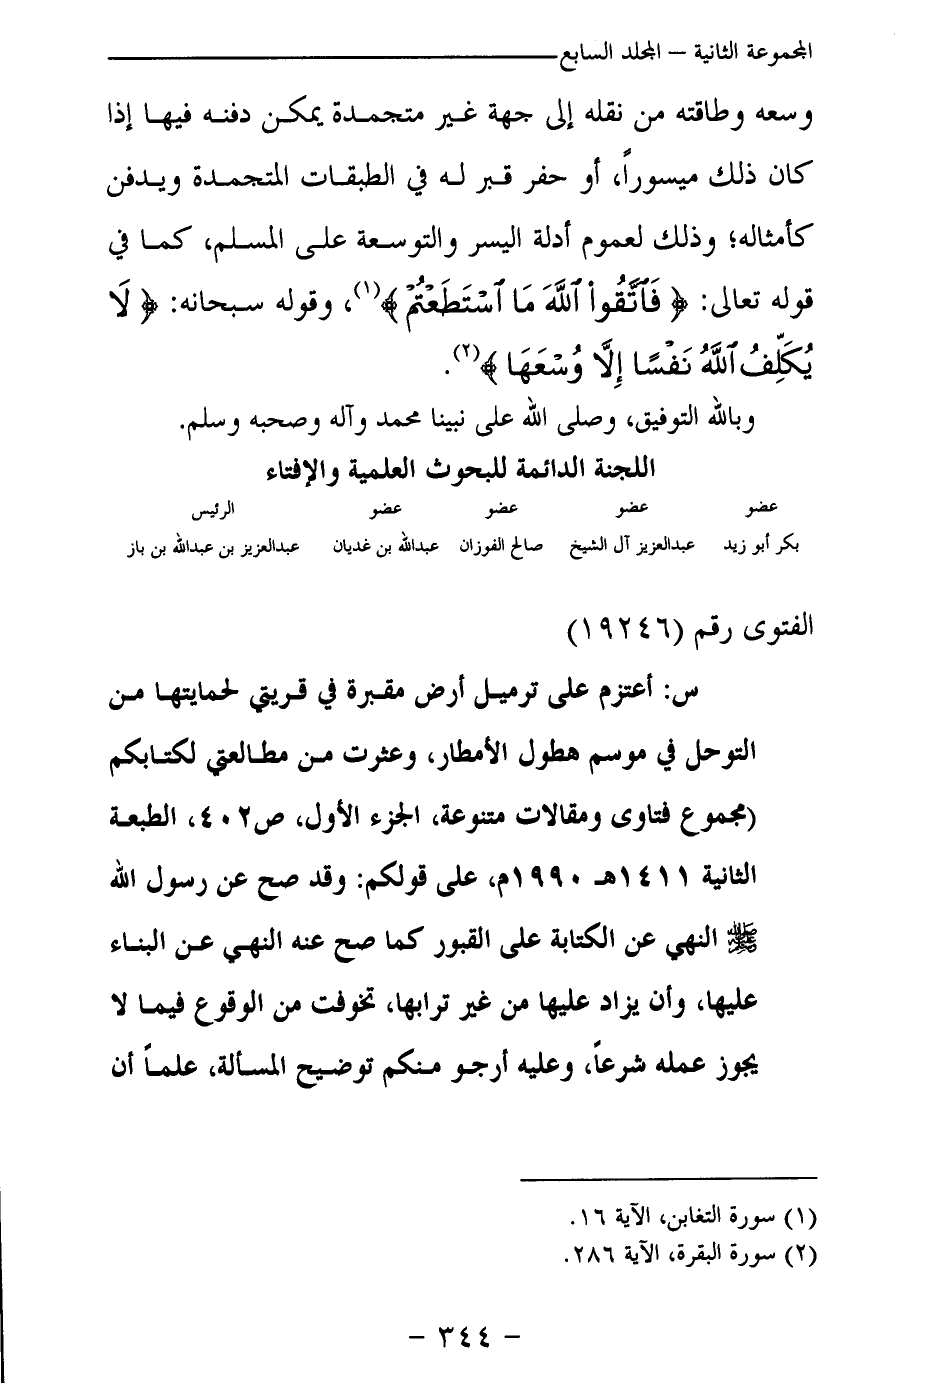 المجموعة الثانية – المجلد السابع
وسعه وطاقته من نقله إلى جهة غير متجمدة يمكن دفنه فيها إذا
كان ذلك ميسوراً، أو حفر قبر له في الطبقات المتجمدة ويدفن
كأمثاله؛ وذلك لعموم أدلة اليسر والتوسعة على المسلم، كما في
قوله تعالى: ﴿ فَٱتَّقُوا۟ ٱللَّهَ مَا ٱسْتَطَعْتُمْ ﴾(١)، وقوله سبحانه: ﴿ لَا
يُكَلِّفُ ٱللَّهُ نَفْسًا إِلَّا وُسْعَهَا ﴾(٢).
وبالله التوفيق، وصلى الله على نبينا محمد وآله وصحبه وسلم.
اللجنة الدائمة للبحوث العلمية والإفتاء
عضو عضو عضو عضو الرئيس
بكر أبو زيد عبدالعزيز آل الشيخ صالح الفوزان عبدالله بن غديان عبدالعزيز بن عبدالله بن باز
الفتوى رقم (١٩٢٤٦)
س: أعتزم على ترميل أرض مقبرة في قريتي لحمايتها من
التوحل في موسم هطول الأمطار، وعثرت من مطالعتي لكتابكم
(مجموع فتاوى ومقالات متنوعة، الجزء الأول، ص٤٠٢، الطبعة
الثانية ١٤١١هـ ١٩٩٠م، على قولكم: وقد صح عن رسول الله
ﷺ النهي عن الكتابة على القبور كما صح عنه النهي عن البناء
عليها، وأن يزاد عليها من غير ترابها، تخوفت من الوقوع فيما لا
يجوز عمله شرعاً، وعليه أرجو منكم توضيح المسألة، علماً أن
(١) سورة التغابن، الآية ١٦.
(٢) سورة البقرة، الآية ٢٨٦.
– ٣٤٤ –